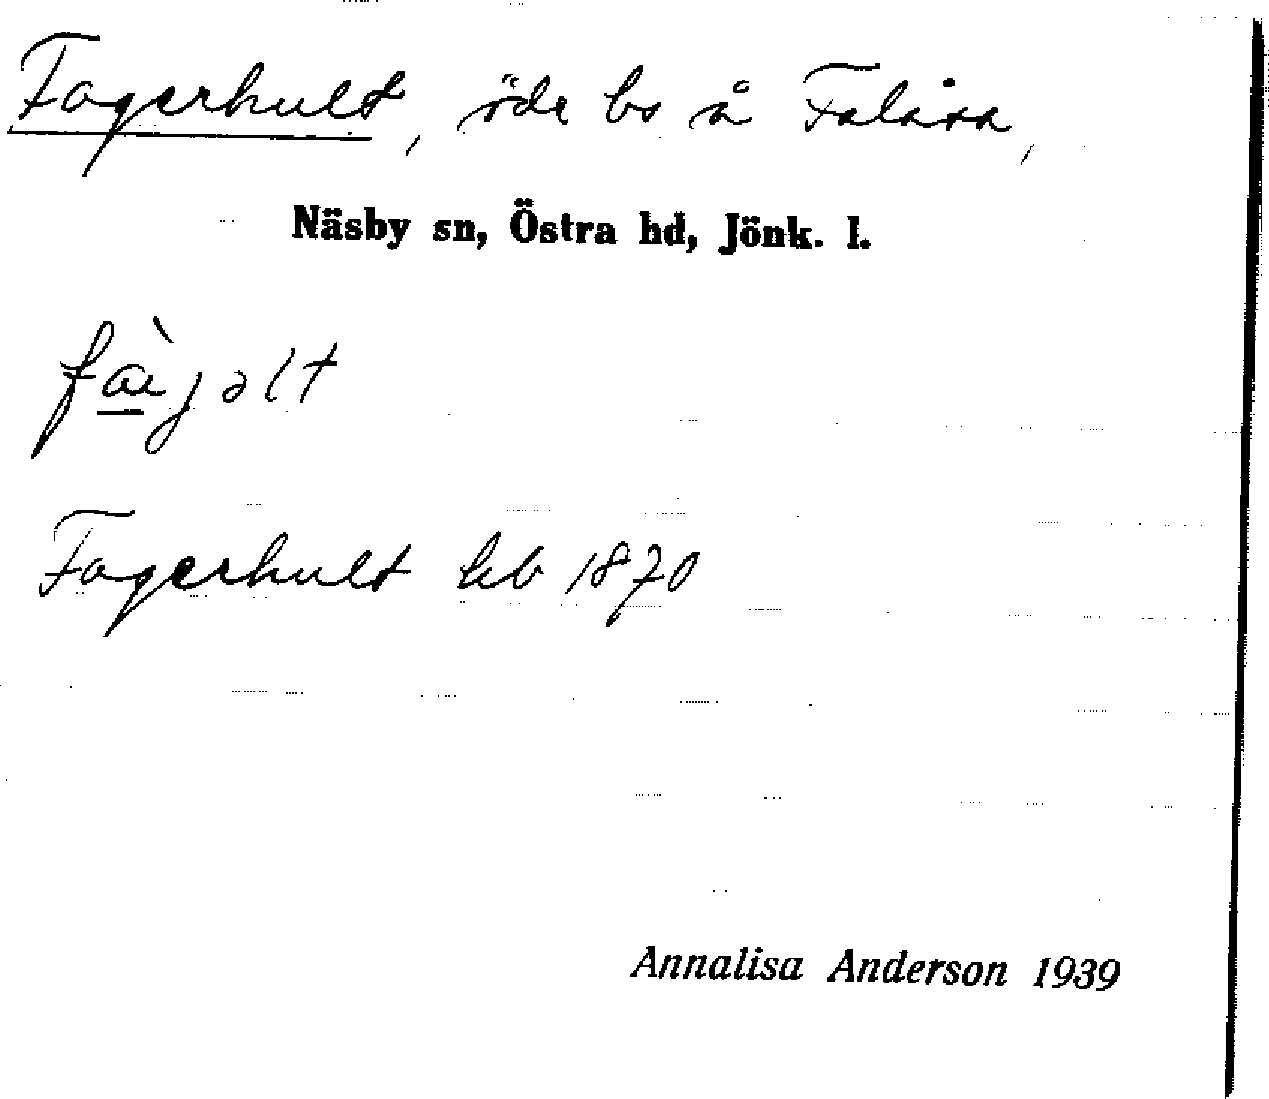 Fagerhult, öde bs å Falåsa,
Näsby sn, Östra hd, Jönk. l.
Fagerhult hb 1870
Annalisa Anderson 1939